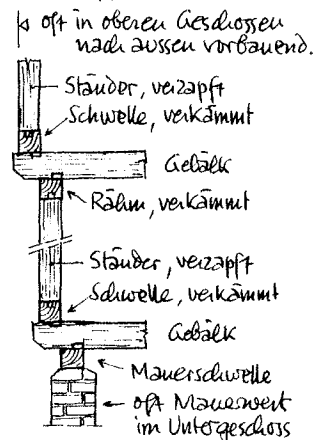 oft in oberen Geschossen
nach aussen vorbauend.
Ständer, verzapft
Schwelle, verkämmt
Gebälk
Rähm, verkämmt
Ständer, verzapft
Schwelle, verkämmt
Gebälk
Mauerschwelle
oft Mauerwerk
im Untergeschoss